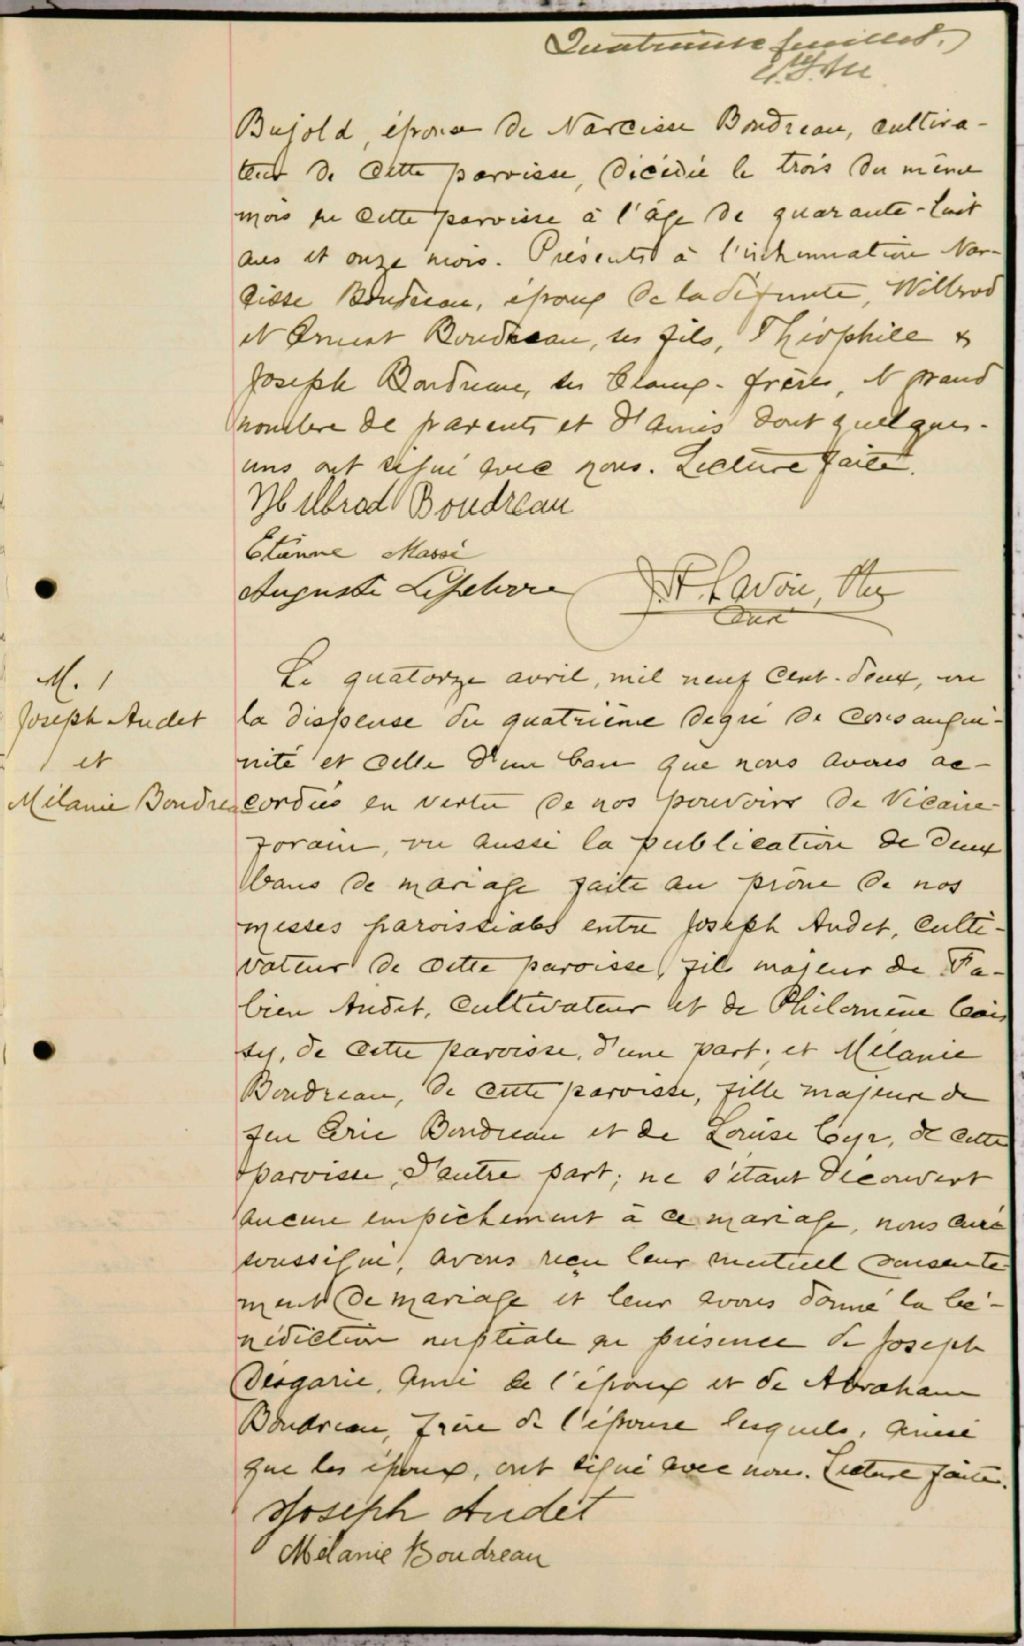 Quatrième feuillet.
Bujold, épouse de Narcisse Boudreau, cultiva-
teur de cette paroisse, décédée le trois du même
mois en cette paroisse à l'âge de quarante-huit
ans et onze mois. Présents à l'inhumation Nar-
cisse Boudreau, époux de la défunte, Willbrod
et Ernest Boudreau, ses fils, Théophile &
Joseph Boudreau, ses beaux-frères, et grand
nombre de parents et d'amis dont quelques-
uns ont signé avec nous. Lecture faite.
Willbrod Boudreau
Etienne Massé
Auguste Lefebvre
J. A. Lavoie, Ptre
Curé
M. 1
Joseph Audet
et
Mélanie Boudreau
Le quatorze avril, mil neuf cent-deux, vu
la dispense du quatrième degré de consangui-
nité et celle d'un ban que nous avons ac-
cordées en vertu de nos pouvoirs de Vicaire-
forain, vu aussi la publication de deux
bans de mariage faite au prône de nos
messes paroissiales entre Joseph Audet, culti-
vateur de cette paroisse, fils majeur de Fa-
bien Audet, cultivateur et de Philomène Cais
sy, de cette paroisse, d'une part; et Mélanie
Boudreau, de cette paroisse, fille majeure de
feu Eric Boudreau et de Louise Cyr, de cette
paroisse, d'autre part; ne s'étant découvert
aucune empêchement à ce mariage, nous curé
soussigné, avons reçu leur mutuel consente-
ment de mariage et leur avons donné la bé-
nédiction nuptiale en présence de Joseph
Désgarie, ami de l'époux et de Abraham
Boudreau, frère de l'épouse lesquels, ainsi
que les époux, ont signé avec nous. Lecture faite.
Joseph Audet
Mélanie Boudreau